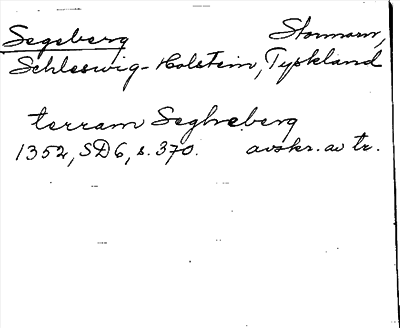 Segeberg Stormarn,
Schleswig-Holstein, Tyskland
terram Segheberg
1352, SD 6, s. 370. avskr. av tr.